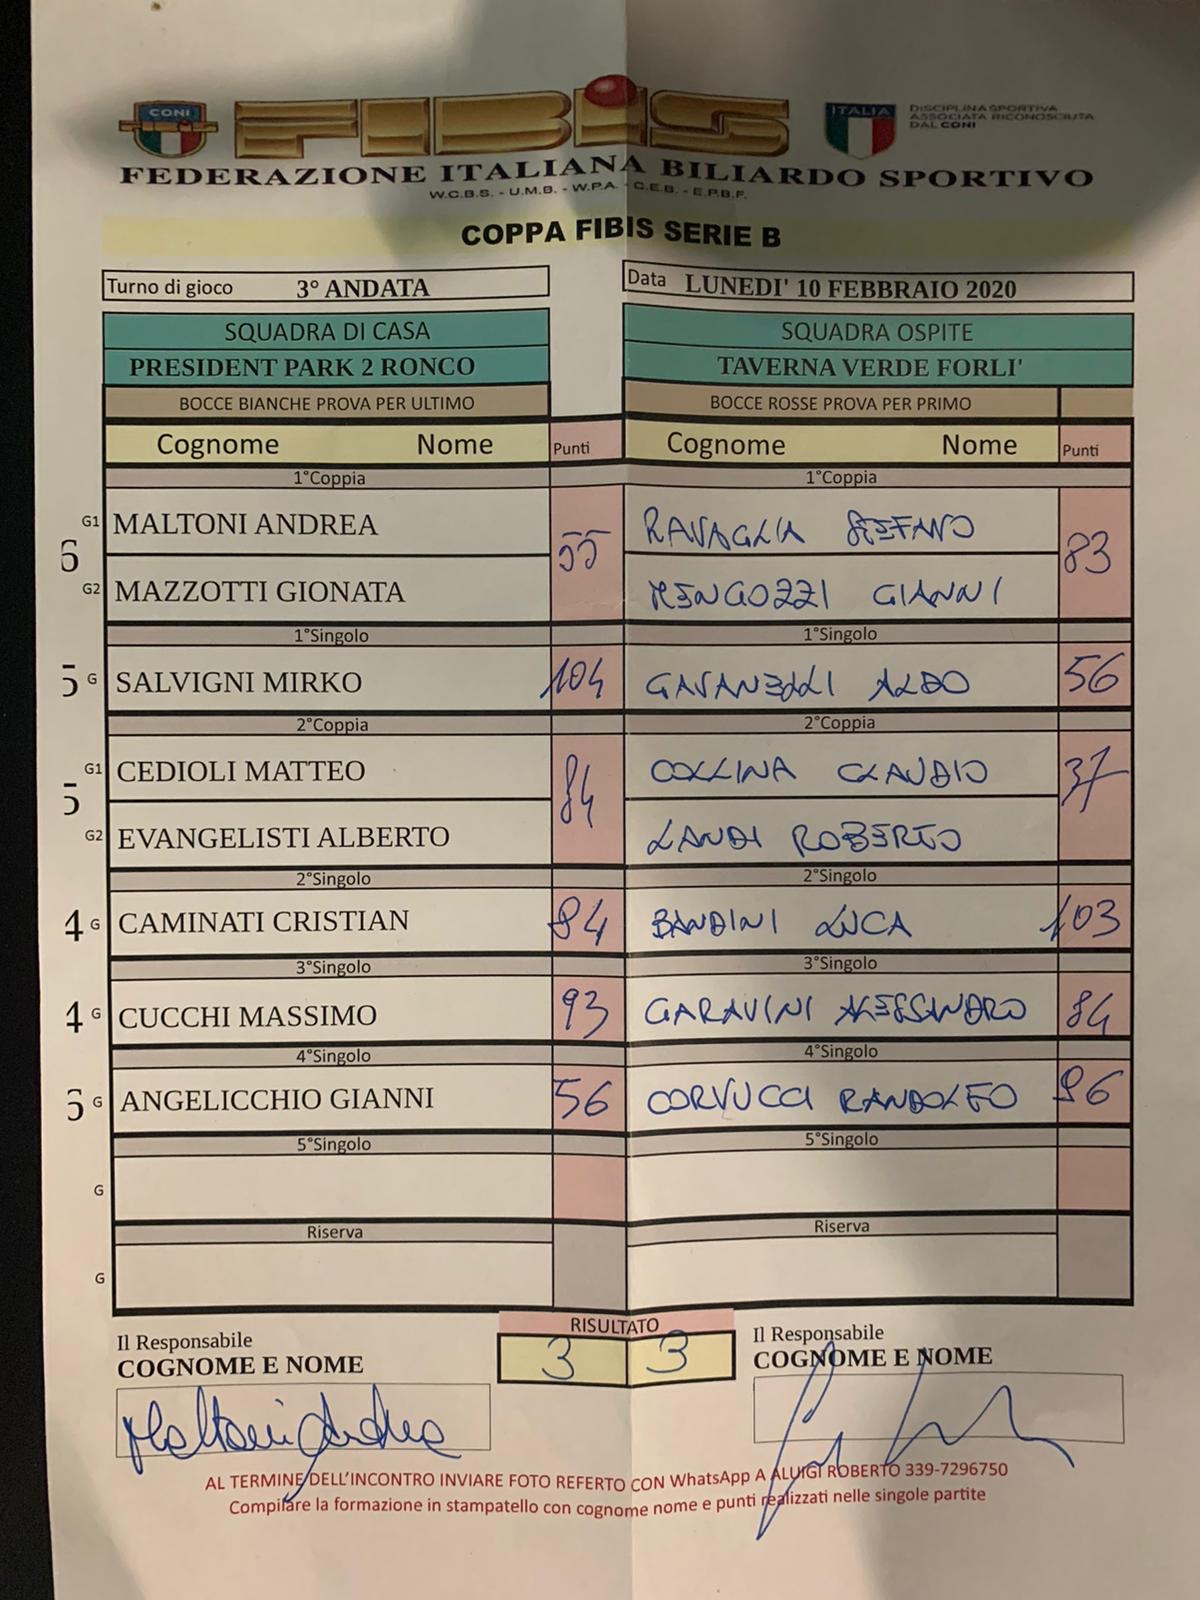 CONI
FIBIS
ITALIA
DISCIPLINA SPORTIVA
ASSOCIATA RICONOSCIUTA
DAL CONI
FEDERAZIONE ITALIANA BILIARDO SPORTIVO
W.C.B.S. - U.M.B. - W.P.A. - C.E.B. - E.P.B.F.
COPPA FIBIS SERIE B
Turno di gioco 3° ANDATA Data LUNEDI' 10 FEBBRAIO 2020
SQUADRA DI CASA SQUADRA OSPITE
PRESIDENT PARK 2 RONCO TAVERNA VERDE FORLI'
BOCCE BIANCHE PROVA PER ULTIMO BOCCE ROSSE PROVA PER PRIMO
Cognome Nome Punti Cognome Nome Punti
1°Coppia 1°Coppia
G1 MALTONI ANDREA RAVAGLIA STEFANO
6 55 83
G2 MAZZOTTI GIONATA MENGOZZI GIANNI
1°Singolo 1°Singolo
5 G SALVIGNI MIRKO 104 GAVANELLI ALDO 56
2°Coppia 2°Coppia
G1 CEDIOLI MATTEO COLLINA CLAUDIO
5 84 37
G2 EVANGELISTI ALBERTO LANDI ROBERTO
2°Singolo 2°Singolo
4 G CAMINATI CRISTIAN 84 BANDINI LUCA 103
3°Singolo 3°Singolo
4 G CUCCHI MASSIMO 93 GARAVINI ALESSANDRO 84
4°Singolo 4°Singolo
5 G ANGELICCHIO GIANNI 56 CORVUCCI RANDOLFO 96
5°Singolo 5°Singolo
G
Riserva Riserva
G
RISULTATO
3 3
Il Responsabile Il Responsabile
COGNOME E NOME COGNOME E NOME
Maltoni Andrea
AL TERMINE DELL'INCONTRO INVIARE FOTO REFERTO CON WhatsApp A ALUIGI ROBERTO 339-7296750
Compilare la formazione in stampatello con cognome nome e punti realizzati nelle singole partite